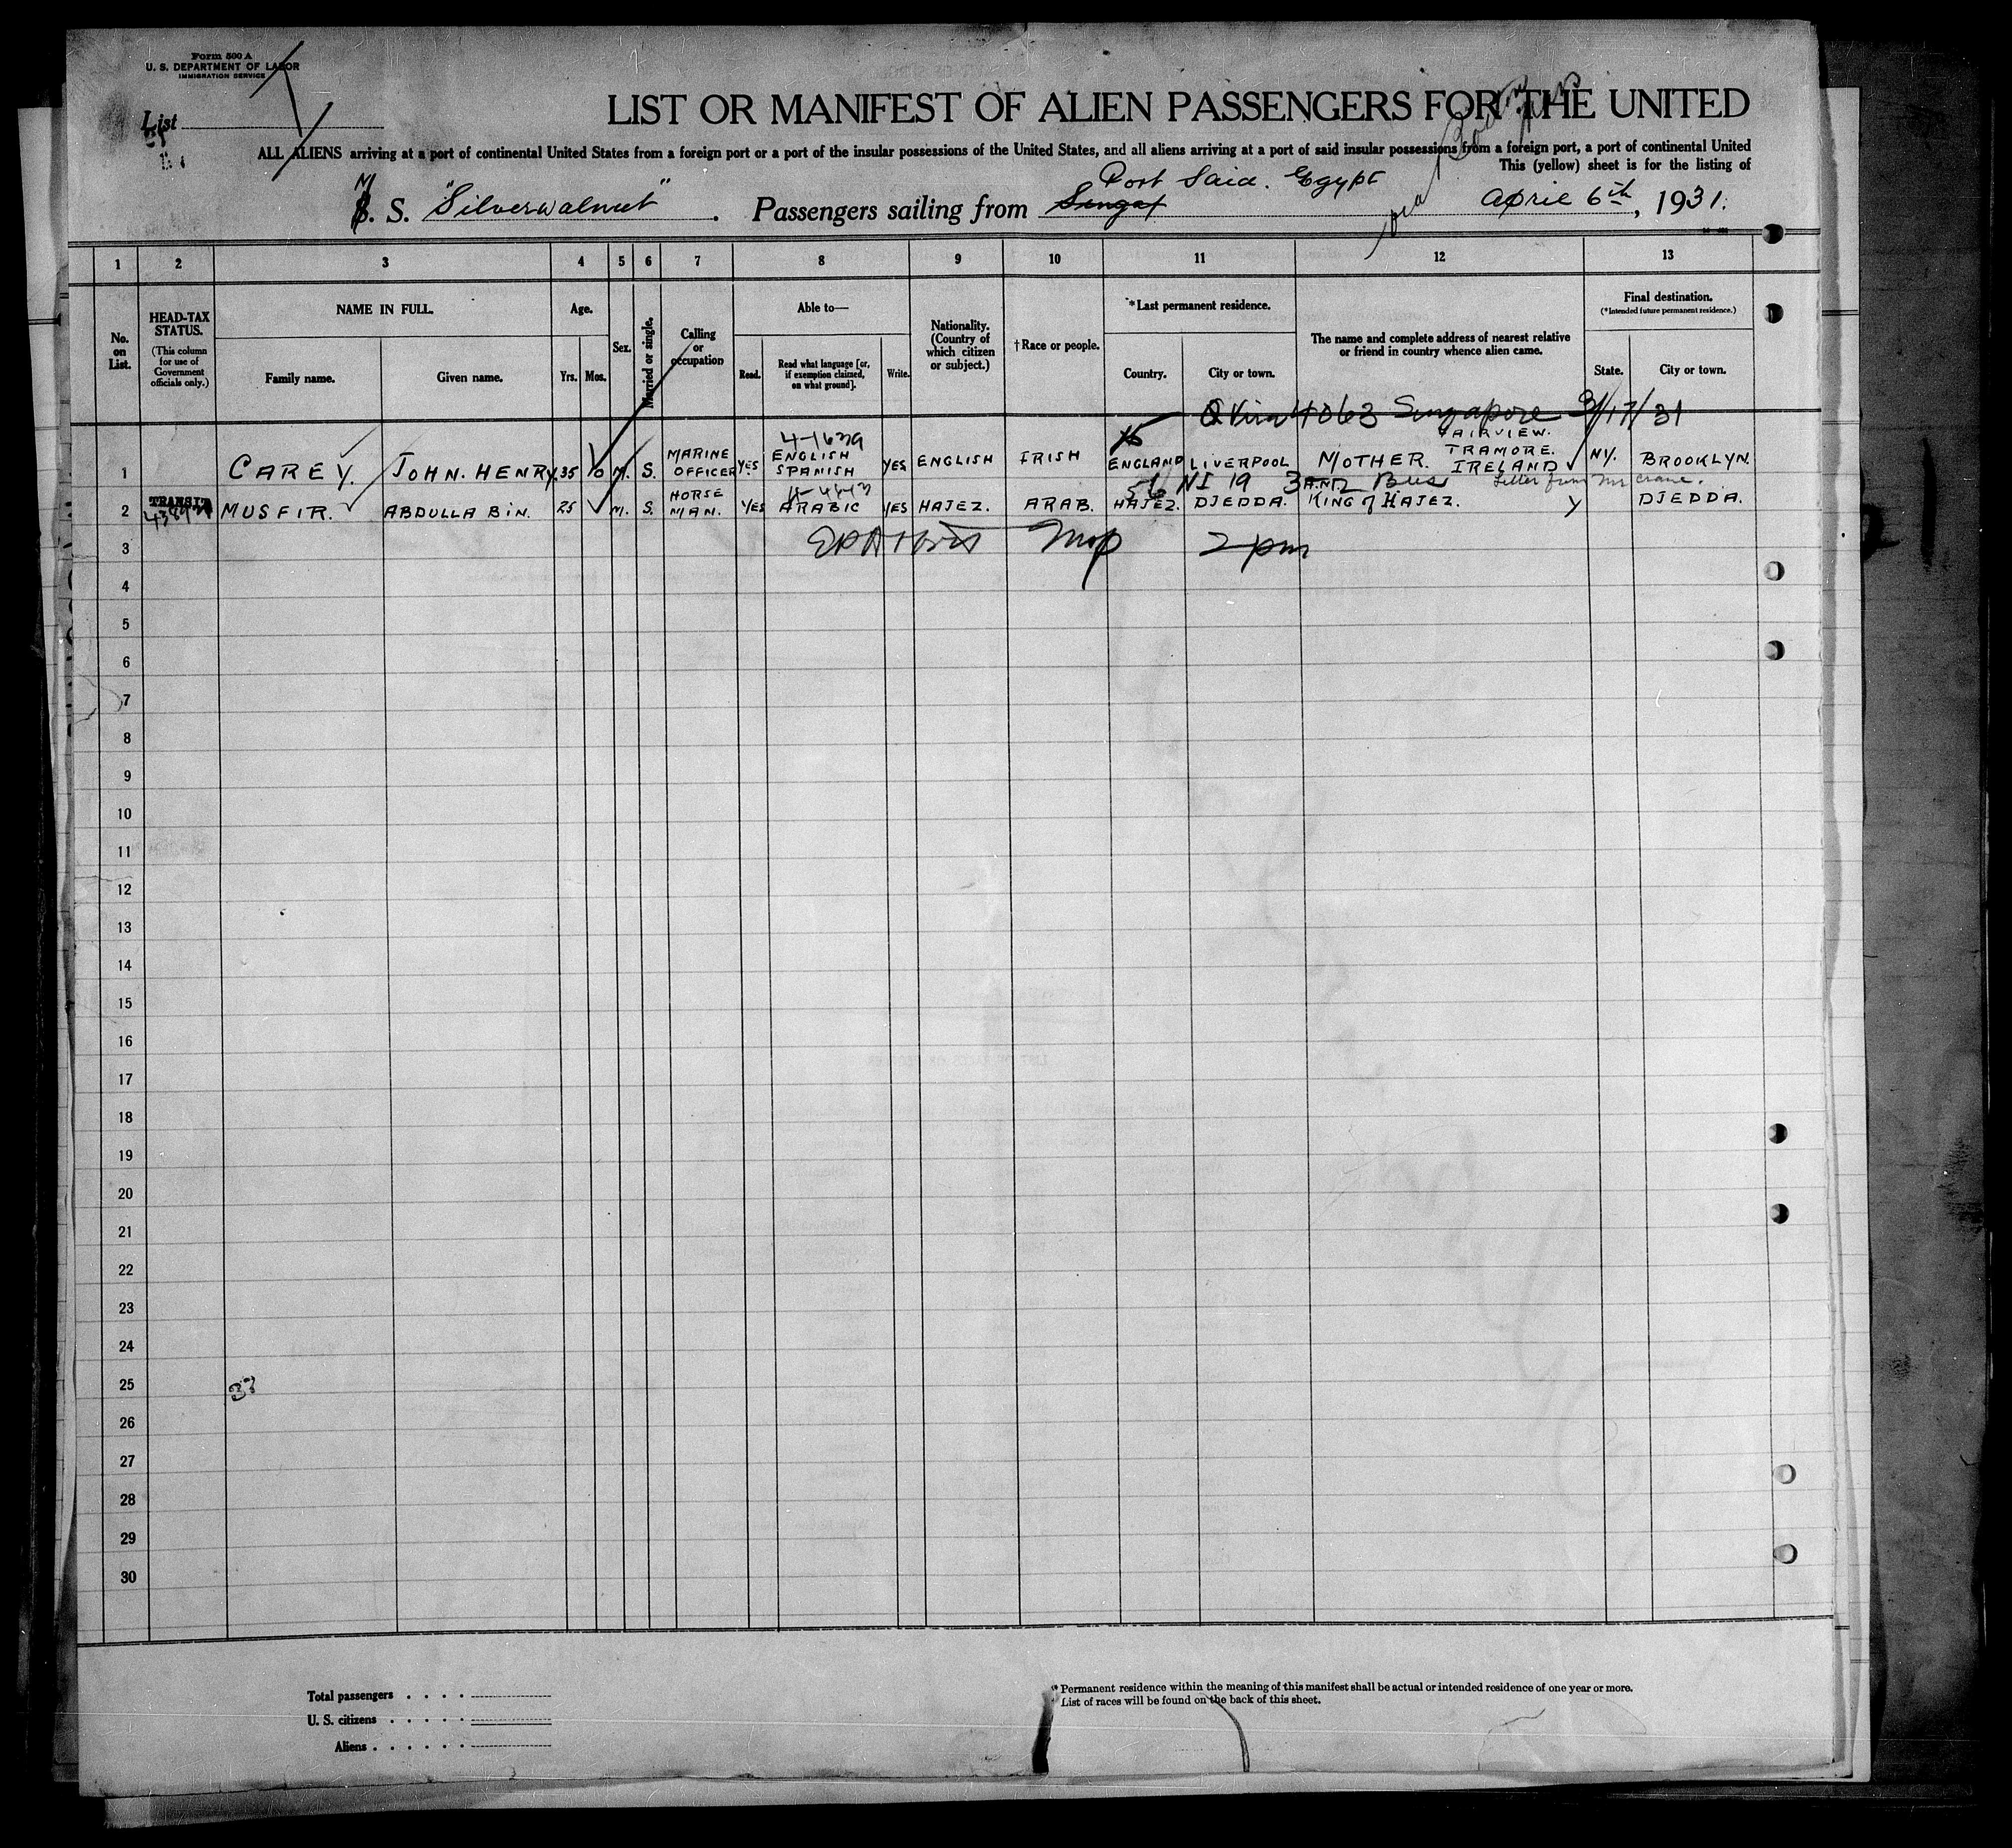 Form 500 A
U. S. DEPARTMENT OF LABOR
IMMIGRATION SERVICE
List
LIST OR MANIFEST OF ALIEN PASSENGERS FOR THE UNITED
ALL ALIENS arriving at a port of continental United States from a foreign port or a port of the insular possessions of the United States, and all aliens arriving at a port of said insular possessions from a foreign port, a port of continental United
This (yellow) sheet is for the listing of
Port Said. Egypt
M. S. "Silverwalnut". Passengers sailing from Singap April 6th, 1931.
1 2 3 4 5 6 7 8 9 10 11 12 13
No. on List.
HEAD-TAX STATUS.
(This column for use of Government officials only.)
NAME IN FULL.
Family name. Given name.
Age.
Yrs. Mos.
Sex.
Married or single.
Calling or occupation
Able to—
Read. Read what language [or, if exemption claimed, on what ground]. Write.
Nationality. (Country of which citizen or subject.)
† Race or people.
*Last permanent residence.
Country. City or town.
The name and complete address of nearest relative or friend in country whence alien came.
Final destination.
(*Intended future permanent residence.)
State. City or town.
4063 Singapore 3/17/31
1 CAREY. JOHN. HENRY. 35 M. S. MARINE OFFICER YES ENGLISH SPANISH YES ENGLISH IRISH ENGLAND LIVERPOOL MOTHER. FAIRVIEW. TRAMORE. IRELAND NY. BROOKLYN.
56 NI 19 3 and 2 Bus Letter from Mr Crane.
2 TRANSIT MUSFIR. ABDULLA BIN. 25 M. S. HORSE MAN. YES ARABIC YES HAJEZ. ARAB. HAJEZ. DJEDDA. KING of HAJEZ. DJEDDA.
3 2 pm
4
5
6
7
8
9
10
11
12
13
14
15
16
17
18
19
20
21
22
23
24
25
26
27
28
29
30
37
Total passengers
U. S. citizens
Aliens
* Permanent residence within the meaning of this manifest shall be actual or intended residence of one year or more.
List of races will be found on the back of this sheet.